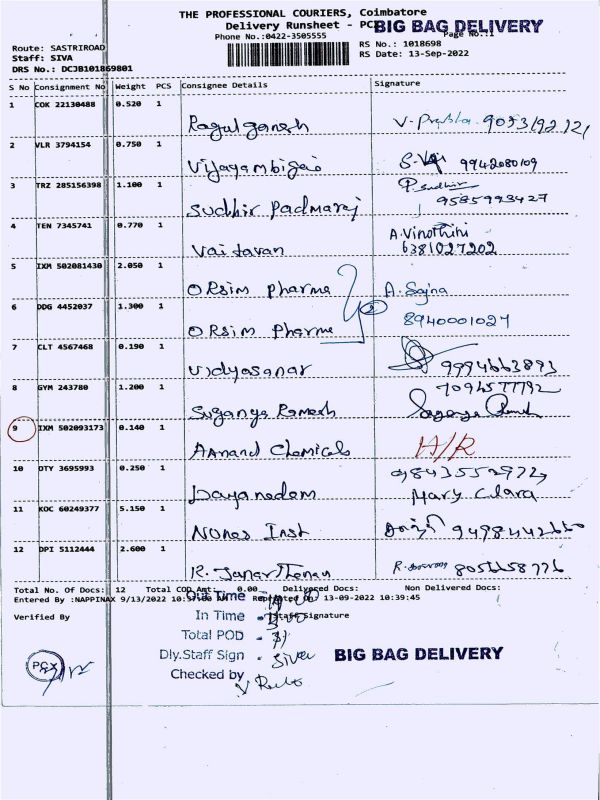 THE PROFESSIONAL COURIERS, Coimbatore
Delivery Runsheet - PCX BIG BAG DELIVERY
Phone No.:0422-3505555 Page No.:1
Route: SASTRIROAD RS No.: 1018698
Staff: SIVA RS Date: 13-Sep-2022
DRS No.: DCJB101869801
S No Consignment No Weight PCS Consignee Details Signature
1 COK 22130488 0.520 1
Ragul ganesh V. Prabha
2 VLR 3794154 0.750 1
9942080109
3 TRZ 285156398 1.100 1
Sudhir Padmaraj P. Sudhir
9585993427
4 TEN 7345741 0.770 1
A. Vinothini
6381027202
5 IXM 502081430 2.050 1
ORSim Pharma A. Sajna
6 DDG 4452037 1.300 1 2
ORSim Pharma 8940001027
7 CLT 4567468 0.190 1
9994663893
8 GYM 243780 1.200 1 7094577792
Suganya Ramesh
9 IXM 502093173 0.140 1
Aanand Chemicals H/R
10 DTY 3695993 0.250 1
Mary Clara
11 KOC 60249377 5.150 1
12 DPI 5112444 2.600 1
8056658776
Total No. Of Docs: 12 Total COD Amt: 0.00 Delivered Docs: Non Delivered Docs:
Entered By :NAPPINAX 9/13/2022 13-09-2022 10:39:45
Out Time -
Verified By In Time - Staff Signature
Total POD -
PCX Dly.Staff Sign - Siva BIG BAG DELIVERY
Checked by